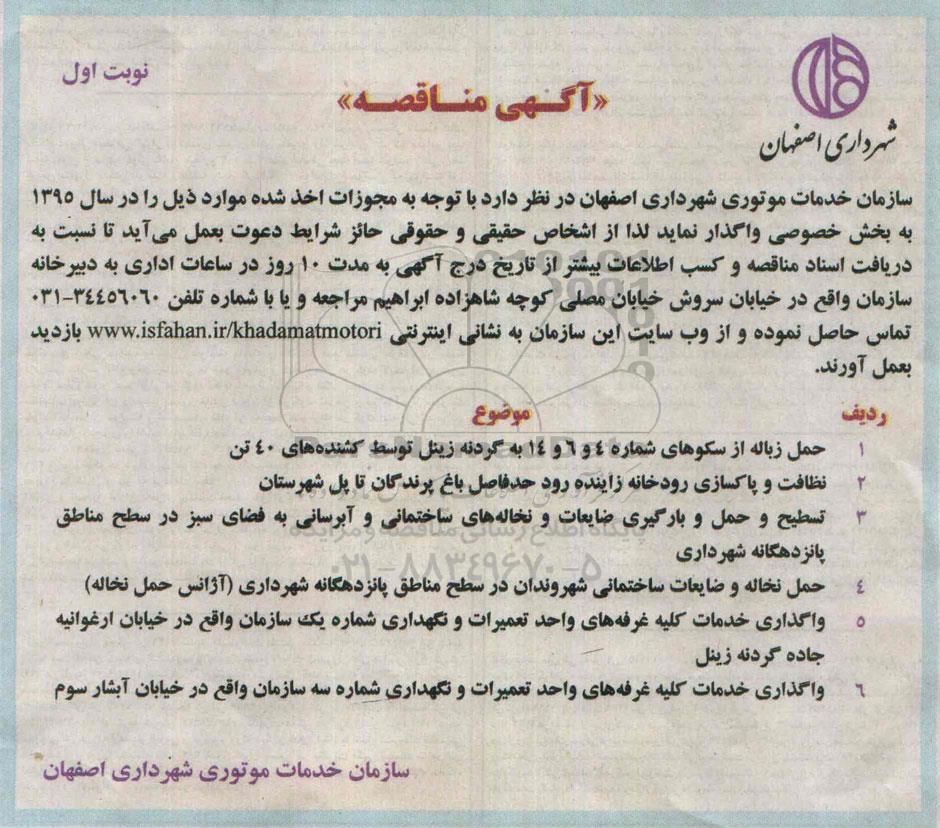 نوبت اول
«آگهی مناقصه»
شهرداری اصفهان
سازمان خدمات موتوری شهرداری اصفهان در نظر دارد با توجه به مجوزات اخذ شده موارد ذیل را در سال ۱۳۹۵
به بخش خصوصی واگذار نماید لذا از اشخاص حقیقی و حقوقی حائز شرایط دعوت بعمل می‌آید تا نسبت به
دریافت اسناد مناقصه و کسب اطلاعات بیشتر از تاریخ درج آگهی به مدت ۱۰ روز در ساعات اداری به دبیرخانه
سازمان واقع در خیابان سروش خیابان مصلی کوچه شاهزاده ابراهیم مراجعه و یا با شماره تلفن ۳۴۴۵۶۰۶۰-۰۳۱
تماس حاصل نموده و از وب سایت این سازمان به نشانی اینترنتی www.isfahan.ir/khadamatmotori بازدید
بعمل آورند.
ردیف موضوع
۱ حمل زباله از سکوهای شماره ۴ و ۶ و ۱۴ به گردنه زینل توسط کشنده‌های ۴۰ تن
۲ نظافت و پاکسازی رودخانه زاینده رود حدفاصل باغ پرندگان تا پل شهرستان
۳ تسطیح و حمل و بارگیری ضایعات و نخاله‌های ساختمانی و آبرسانی به فضای سبز در سطح مناطق
پانزدهگانه شهرداری
۴ حمل نخاله و ضایعات ساختمانی شهروندان در سطح مناطق پانزدهگانه شهرداری (آژانس حمل نخاله)
۵ واگذاری خدمات کلیه غرفه‌های واحد تعمیرات و نگهداری شماره یک سازمان واقع در خیابان ارغوانیه
جاده گردنه زینل
۶ واگذاری خدمات کلیه غرفه‌های واحد تعمیرات و نگهداری شماره سه سازمان واقع در خیابان آبشار سوم
سازمان خدمات موتوری شهرداری اصفهان
پایگاه اطلاع رسانی مناقصه و مزایده
۰۲۱-۸۸۳۴۹۶۷۰-۵